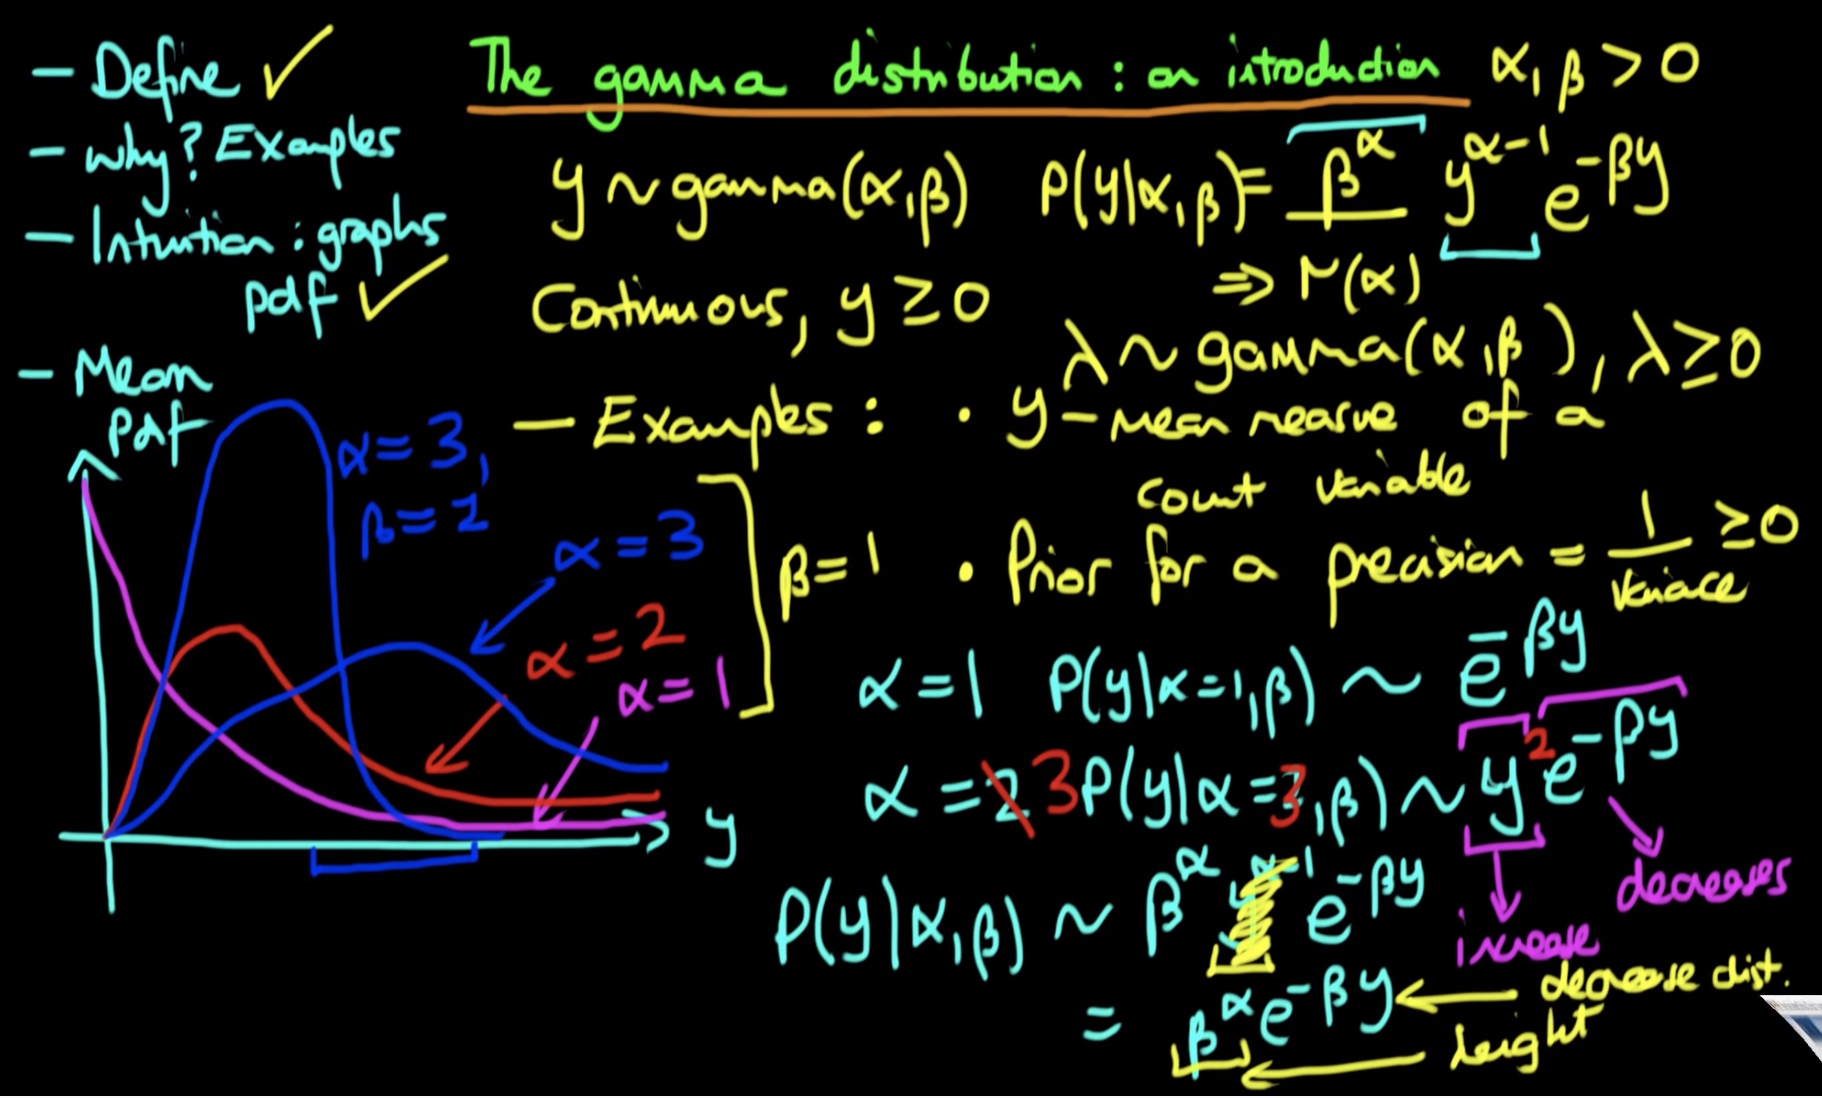 - Define ✓
- Why? Examples
- Intuition : graphs
pdf ✓
- Mean
The gamma distribution : an introduction
α, β > 0
y ~ gamma(α,β) P(y|α,β) = β^α / Γ(α) y^α-1 e^-βy
Continuous, y ≥ 0 ⇒
λ ~ gamma(α,β), λ ≥ 0
- Examples : · y - mean
of a
count variable
· Prior for a precision = 1/variace ≥ 0
Pdf
α = 3,
β = 2
α = 3
α = 2
α = 1
β = 1
y
α = 1 P(y|α=1,β) ~ e^-βy
α = 2 3 P(y|α=3,β) ~ y^2 e^-βy
increase
decreases
P(y|α,β) ~ β^α y^α-1 e^-βy
= β^α e^-βy ← decrease dist.
← height